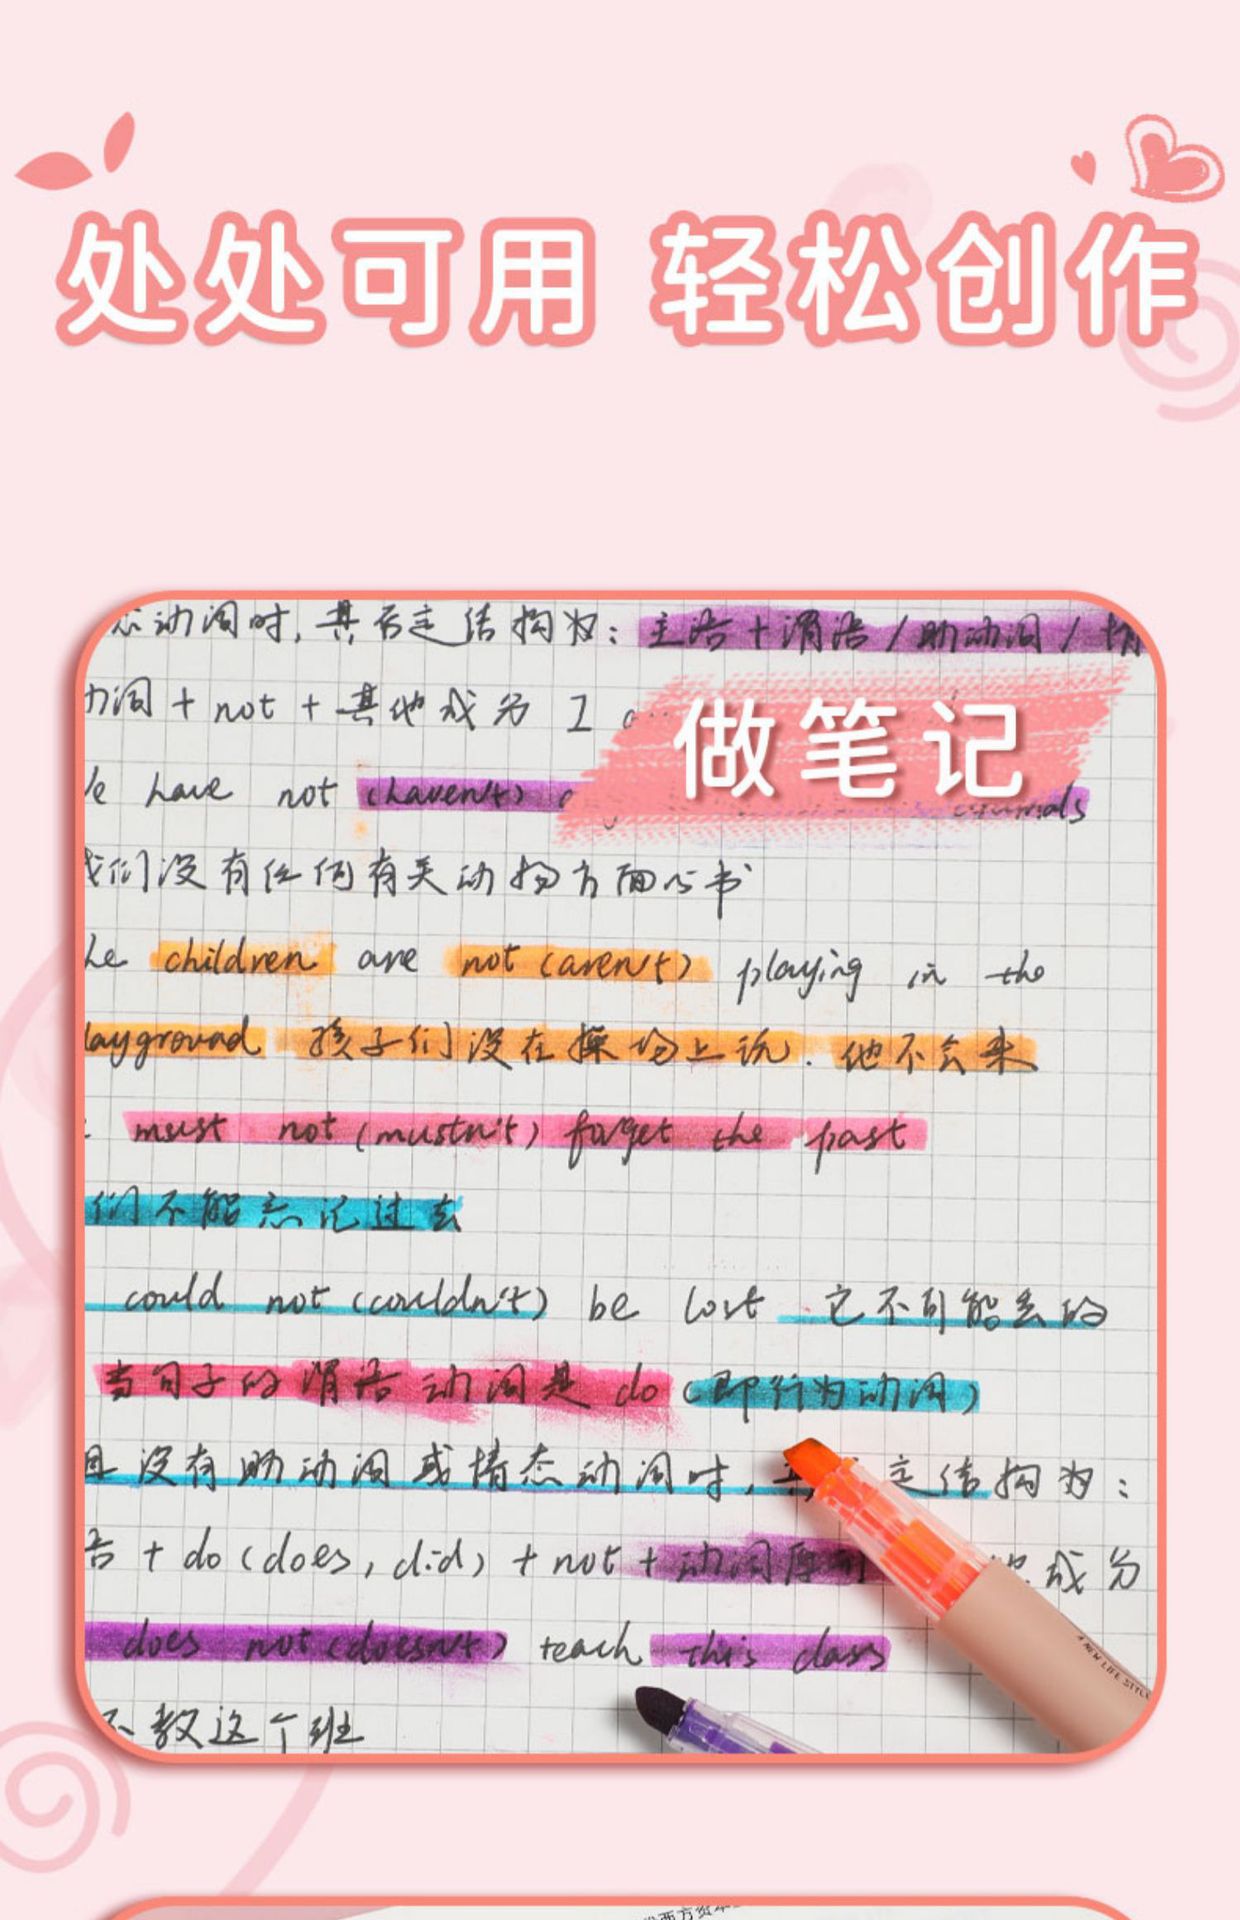 处处可用 轻松创作
态动词时,其否定结构为:主语+谓语/助动词/情
动词+not+其他成分 I
做笔记
We have not (haven't)
我们没有任何有关动物方面的书
he children are not (aren't) playing in the
layground 孩子们没在操场上玩.他不会来
must not (mustn't) forget the past
们不能忘记过去
could not (couldn't) be lost 它不可能丢的
当句子的谓语动词是 do (即行为动词)
且没有助动词或情态动词时,其否定结构为:
语+do(does, did)+not+动词原 成分
does not (doesn't) teach this class
不教这个班
A NEW LIFE STYLE